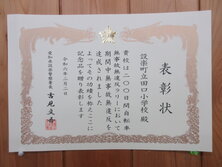 表彰状
設楽町立田口小学校 殿
貴校は二〇〇日間自転車
無事故無違反ラリーにおいて
期間中無事故無違反を
達成されました
よってその功績を称えここに
記念品を贈り表彰します
令和六年二月二日
愛知県設楽警察署長